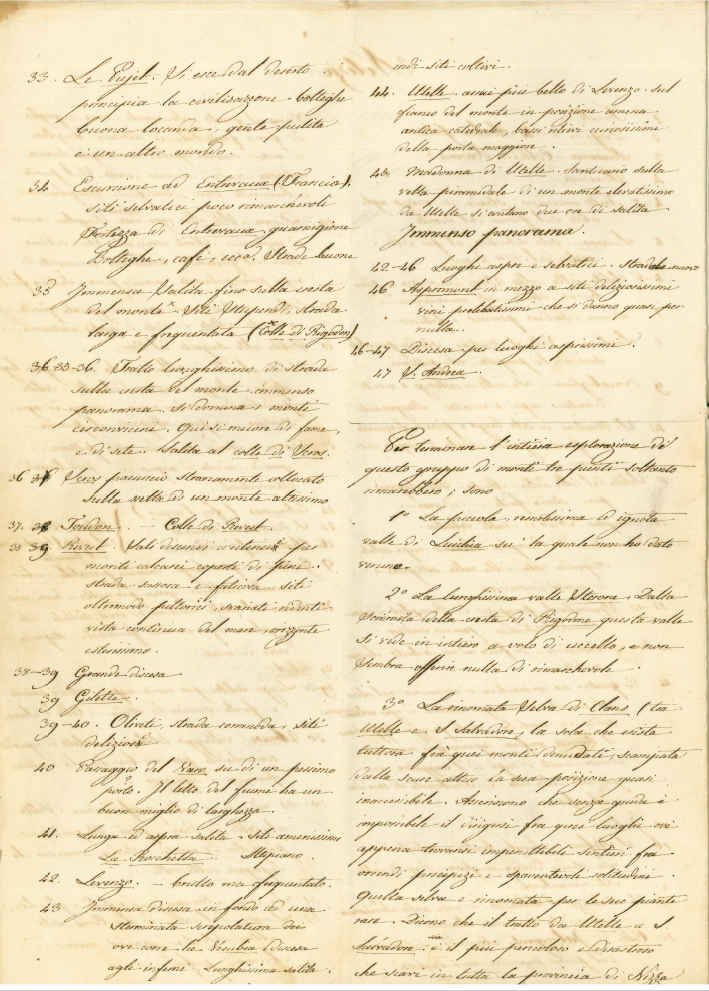 33. Le Pujet. Si esce dal deserto.
principia la civilisazione. botteghe
buona locanda, gente pulita
è un altro mondo.
34 Escursione ad Entrevaux (Francia).
siti selvatici poco rimarchevoli
Fortezza di Entrevaux, guarnigione
Botteghe, cafè, ecca. Strade buone
35 Immensa Salita fino sulla cresta
del monte. Siti Stupendi, strada
larga e frequentata (Colle di Rigodon)
36 35-36. Tratto lunghissimo di strada
sulla cresta del monte immenso
panorama. Si domina i monti
circonvicini. Qui si muore di fame,
e di sete. Salita al colle di Veros.
36 Veros paesuccio stranamente collocato
sulla vetta di un monte altissimo
37. 38 Toudon. — Colle di Revest.
38 39 Revest. Sali discendi continui per
monti calcari coperti di pini.
strada sassosa e faticosa siti
oltremodo pittorici, svariati ridenti
vista continua del mare, orizzonte
estesissimo.
38-39 Grande discesa
39 Gilette.
39-40. Oliveti, strada commoda, siti
deliziosi
40 Passaggio del Varo su di un pessimo
porto. Il letto del fiume ha un
buon miglio di larghezza.
41. Lunga ed aspra salita. Siti amenissimi
La Rochetta. Altipiano.
42. Levenzo. — brutto ma frequentato.
43 Immensa discesa in fondo ad una
sterminata screpolatura dei
ove corre la Vesubia discesa
agli inferni. Lunghissima salita:
indi siti coltivi.
44. Utelle assai più bello di Levenzo. sul
fianco del monte in posizione amena
antica catedrale, bassi rilievi curiosissimi
della porta maggiore.
45 Madonna di Utelle. Santuario sulla
vetta piramidale di un monte elevatissimo
da Utelle si contano due ore di salita
Immenso panorama.
42-46 Luoghi aspri e selvatici. Strade nuove
46 Aspromont in mezzo a siti deliziosissimi
vini prelibatissimi che si danno quasi per
nulla.
46-47 Discesa per luoghi asprissimi.
47 S. Andrea.
Per terminare l'intiera esplorazione di
questo gruppo di monti tre punti soltanto
rimarrebbero; sono
1º La piccola, remotissima ed ignota
valle di su la quale non ho dato
veruno.
2º La lunghissima valle Sterone. Dalla
Sommità della cresta di Rigodone questa valle
si vede in intiero a volo di uccello, e non
sembra offerir nulla di rimarchevole.
3º La rinomata Selva di Clans (tra
Utelle e S. Salvadore, la sola che esista
tuttora fra quei monti denudati, scampata
dalla scure attesa la sua posizione quasi
inaccessibile. Assicurano che senza guida è
impossibile il dirigersi fra quei luoghi ove
appena trovansi impercettibili sentieri fra
orrendi precipizi e spaventevoli solitudini.
Quella selva è rinomata per le sue piante
rare. Dicono che il tratto da Utelle a S.
Salvadore sia il più pericoloso e disastroso
che siavi in tutta la provincia di Nizza